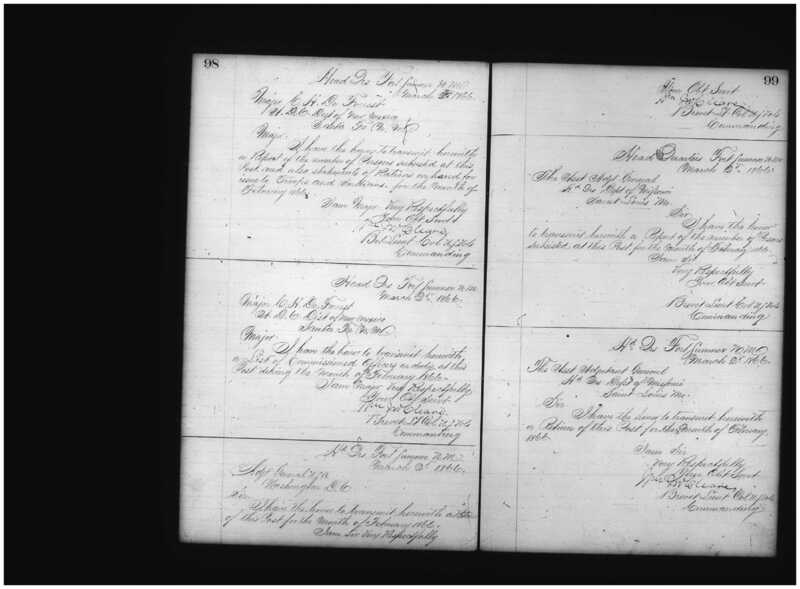 98
Head Qrs Fort Sumner N. M.
March 2d 1866.
Major C. H. De Forrest
A. D. C. Dist of New Mexico
Santa Fe N. M.
Major
I have the honor to transmit herewith
a Report of the number of Persons subsisted at this
Post and also statements of Rations on hand for
issue to Troops and Indians for the month of
February 1866.
I am Major Very Respectfully
Your Obt Servt
Wm McCleave
Bvt Lieut Col U.S. Vols
Commanding
Head Qrs Fort Sumner N. M.
March 2d 1866.
Major C. H. De Forrest
A. D. C. Dist of New Mexico
Santa Fe N. M.
Major
I have the honor to transmit herewith
a List of Commissioned Officers on duty at this
Post during the Month of February 1866.
I am Major Very Respectfully
Your Obt Servt
Wm McCleave
Brevet Lt Col U.S. Vols
Commanding
Hd Qrs Fort Sumner N. M.
March 2d 1866.
Adjt General U.S.A.
Washington D. C.
Sir
I have the honor to transmit herewith a
of this Post for the Month of February 1866.
I am Sir Very Respectfully
99
Your Obt Servt
Wm McCleave
Brevet Lt Col U.S. Vols
Commanding
Head Quarters Fort Sumner N. M.
March 2d 1866.
The Asst Adjt General
Hd Qrs Dept of Missouri
Saint Louis Mo.
Sir
I have the honor
to transmit herewith a Report of the number of Persons
subsisted at this Post for the Month of February 1866.
I am Sir
Very Respectfully
Your Obt Servt
Brevet Lieut Col U.S. Vols
Commanding
Hd Qrs Fort Sumner N. M.
March 2d 1866.
The Asst Adjutant General
Hd Qrs Dept of Missouri
Saint Louis Mo.
Sir
I have the honor to transmit herewith
a Return of this Post for the Month of February
1866.
I am Sir
Very Respectfully
Your Obt Servt
Wm McCleave
Brevet Lieut Col U.S. Vols
Commanding